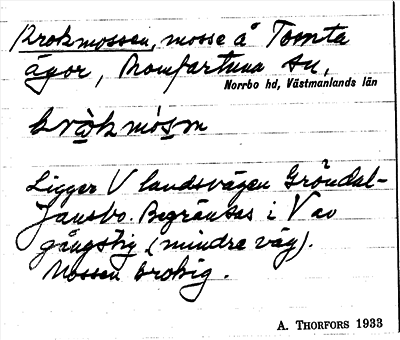 Krokmossen, mosse å Tomta
ägor, Romfartuna sn,
Norrbo hd, Västmanlands län
kròkmòsɐn
Ligger V landsvägen Gröndal-
Jansbo. Begränsas i V av
gångstig (mindre väg).
Mossen krokig.
A. THORFORS 1933